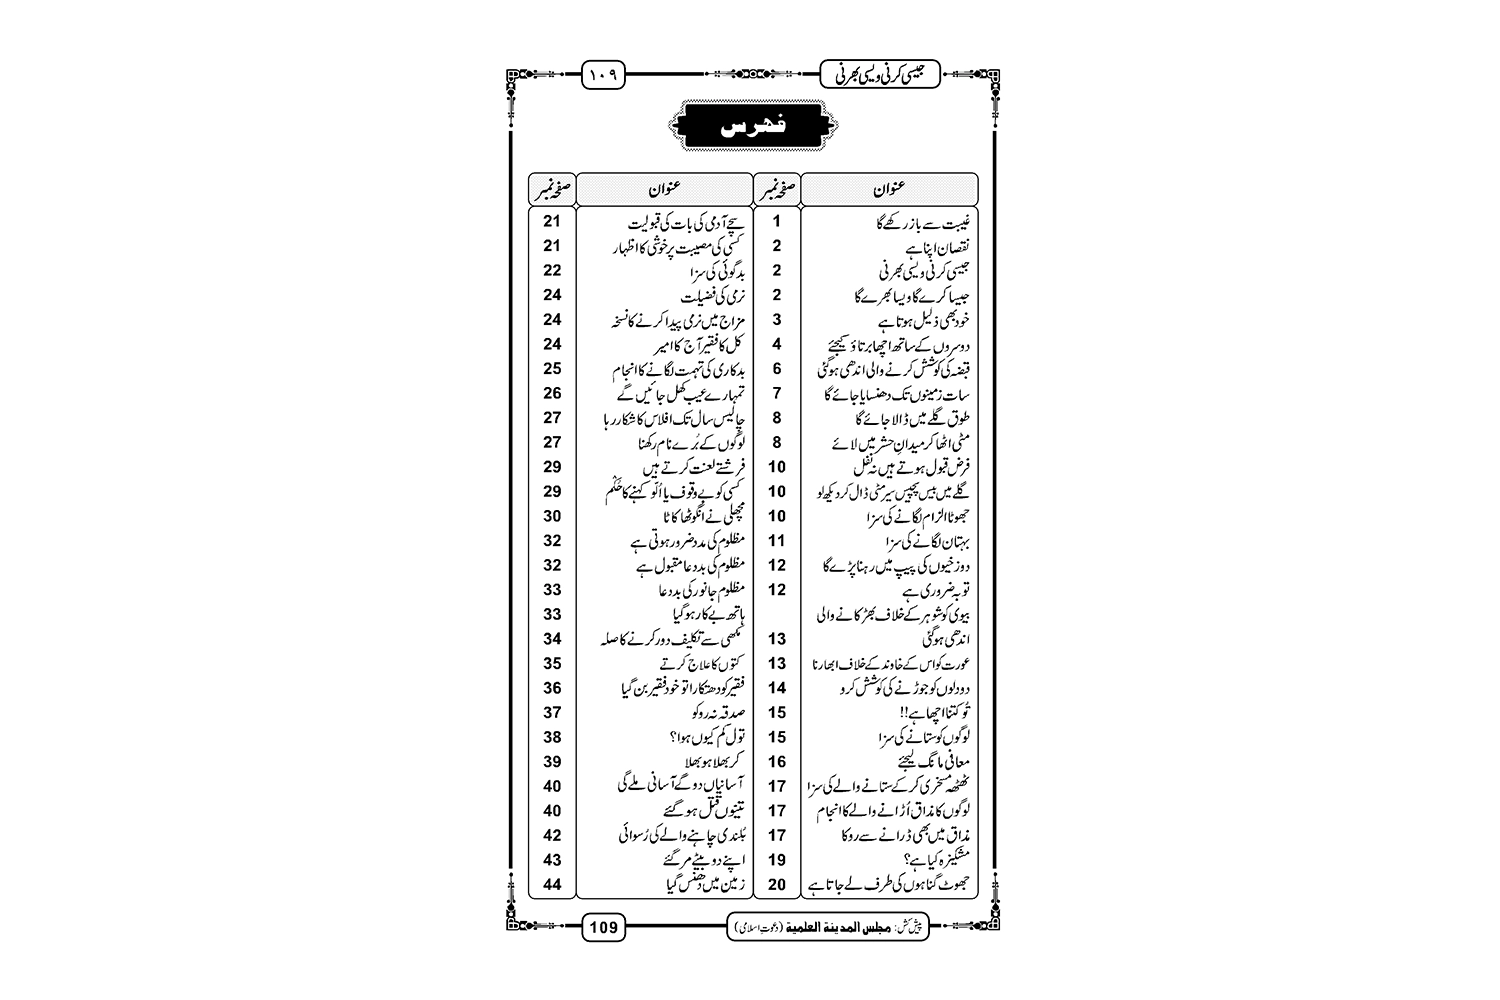 جیسی کرنی ویسی بھرنی ۱۰۹
فہرس
عنوان صفحہ نمبر عنوان صفحہ نمبر
غیبت سے باز رکھے گا 1 سچے آدمی کی بات کی قبولیت 21
نقصان اپنا ہے 2 کسی کی مصیبت پر خوشی کا اظہار 21
جیسی کرنی ویسی بھرنی 2 بدگوئی کی سزا 22
جیسا کرے گا ویسا بھرے گا 2 نرمی کی فضیلت 24
خود بھی ذلیل ہوتا ہے 3 مزاج میں نرمی پیدا کرنے کا نسخہ 24
دوسروں کے ساتھ اچھا برتاؤ کیجئے 4 کل کا فقیر آج کا امیر 24
قبضہ کی کوشش کرنے والی اندھی ہوگئی 6 بدکاری کی تہمت لگانے کا انجام 25
سات زمینوں تک دھنسایا جائے گا 7 تمہارے عیب کھل جائیں گے 26
طوق گلے میں ڈالا جائے گا 8 چالیس سال تک افلاس کا شکار رہا 27
مٹی اٹھا کر میدانِ حشر میں لائے 8 لوگوں کے بُرے نام رکھنا 27
فرض قبول ہوتے ہیں نہ نفل 10 فرشتے لعنت کرتے ہیں 29
گلے میں بیس پچیس سیر مٹی ڈال کر دیکھ لو 10 کسی کو بے وقوف یا اُلّو کہنے کا حُکْم 29
جھوٹا الزام لگانے کی سزا 10 مچھلی نے انگوٹھا کاٹا 30
بہتان لگانے کی سزا 11 مظلوم کی مدد ضرور ہوتی ہے 32
دوزخیوں کی پیپ میں رہنا پڑے گا 12 مظلوم کی بددعا مقبول ہے 32
توبہ ضروری ہے 12 مظلوم جانور کی بددعا 33
بیوی کو شوہر کے خلاف بھڑکانے والی ہاتھ بے کار ہوگیا 33
اندھی ہوگئی 13 مکھی سے تکلیف دور کرنے کا صلہ 34
عورت کو اس کے خاوند کے خلاف ابھارنا 13 کتوں کا علاج کرتے 35
دو دلوں کو جوڑنے کی کوشش کرو 14 فقیر کو دھتکارا تو خود فقیر بن گیا 36
تُو کتنا اچھا ہے!! 15 صدقہ نہ روکو 37
لوگوں کو ستانے کی سزا 15 تول کم کیوں ہوا؟ 38
معافی مانگ لیجئے 16 کر بھلا ہو بھلا 39
ٹھٹھہ مسخری کر کے ستانے والے کی سزا 17 آسانیاں دو گے آسانی ملے گی 40
لوگوں کا مذاق اُڑانے والے کا انجام 17 تینوں قتل ہوگئے 40
مذاق میں بھی ڈرانے سے روکا 17 بُلندی چاہنے والے کی رُسوائی 42
مشکیزہ کیا ہے؟ 19 اپنے دو بیٹے مر گئے 43
جھوٹ گناہوں کی طرف لے جاتا ہے 20 زمین میں دھنس گیا 44
پیش کش: مجلس المدینۃ العلمیۃ (دعوتِ اسلامی) 109